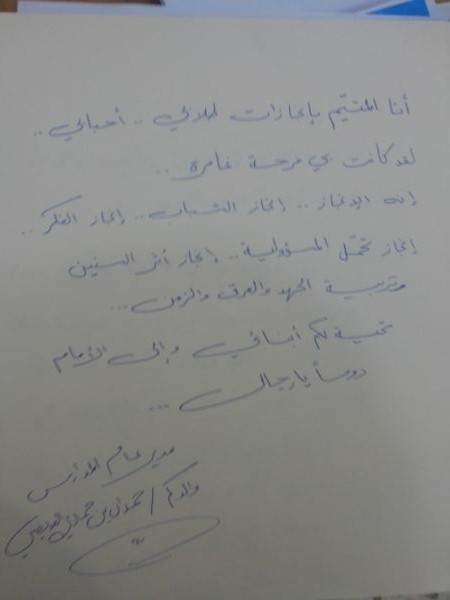 أنا المتيّم بإنجازات طلابي .. أحبابي ..
لقد كانت بي فرحة غامرة ..
إنه الإنجاز ... إنجاز الشباب .. إنجاز الفكر ..
إنجاز تحمّل المسؤولية .. إنجاز أثر السنين
وتربية الجهد والعرق والزمن ...
تحية لكم أبنائي وإلى الأمام
دوماً يا رجال ...
مدير عام المدارس
والدكم /